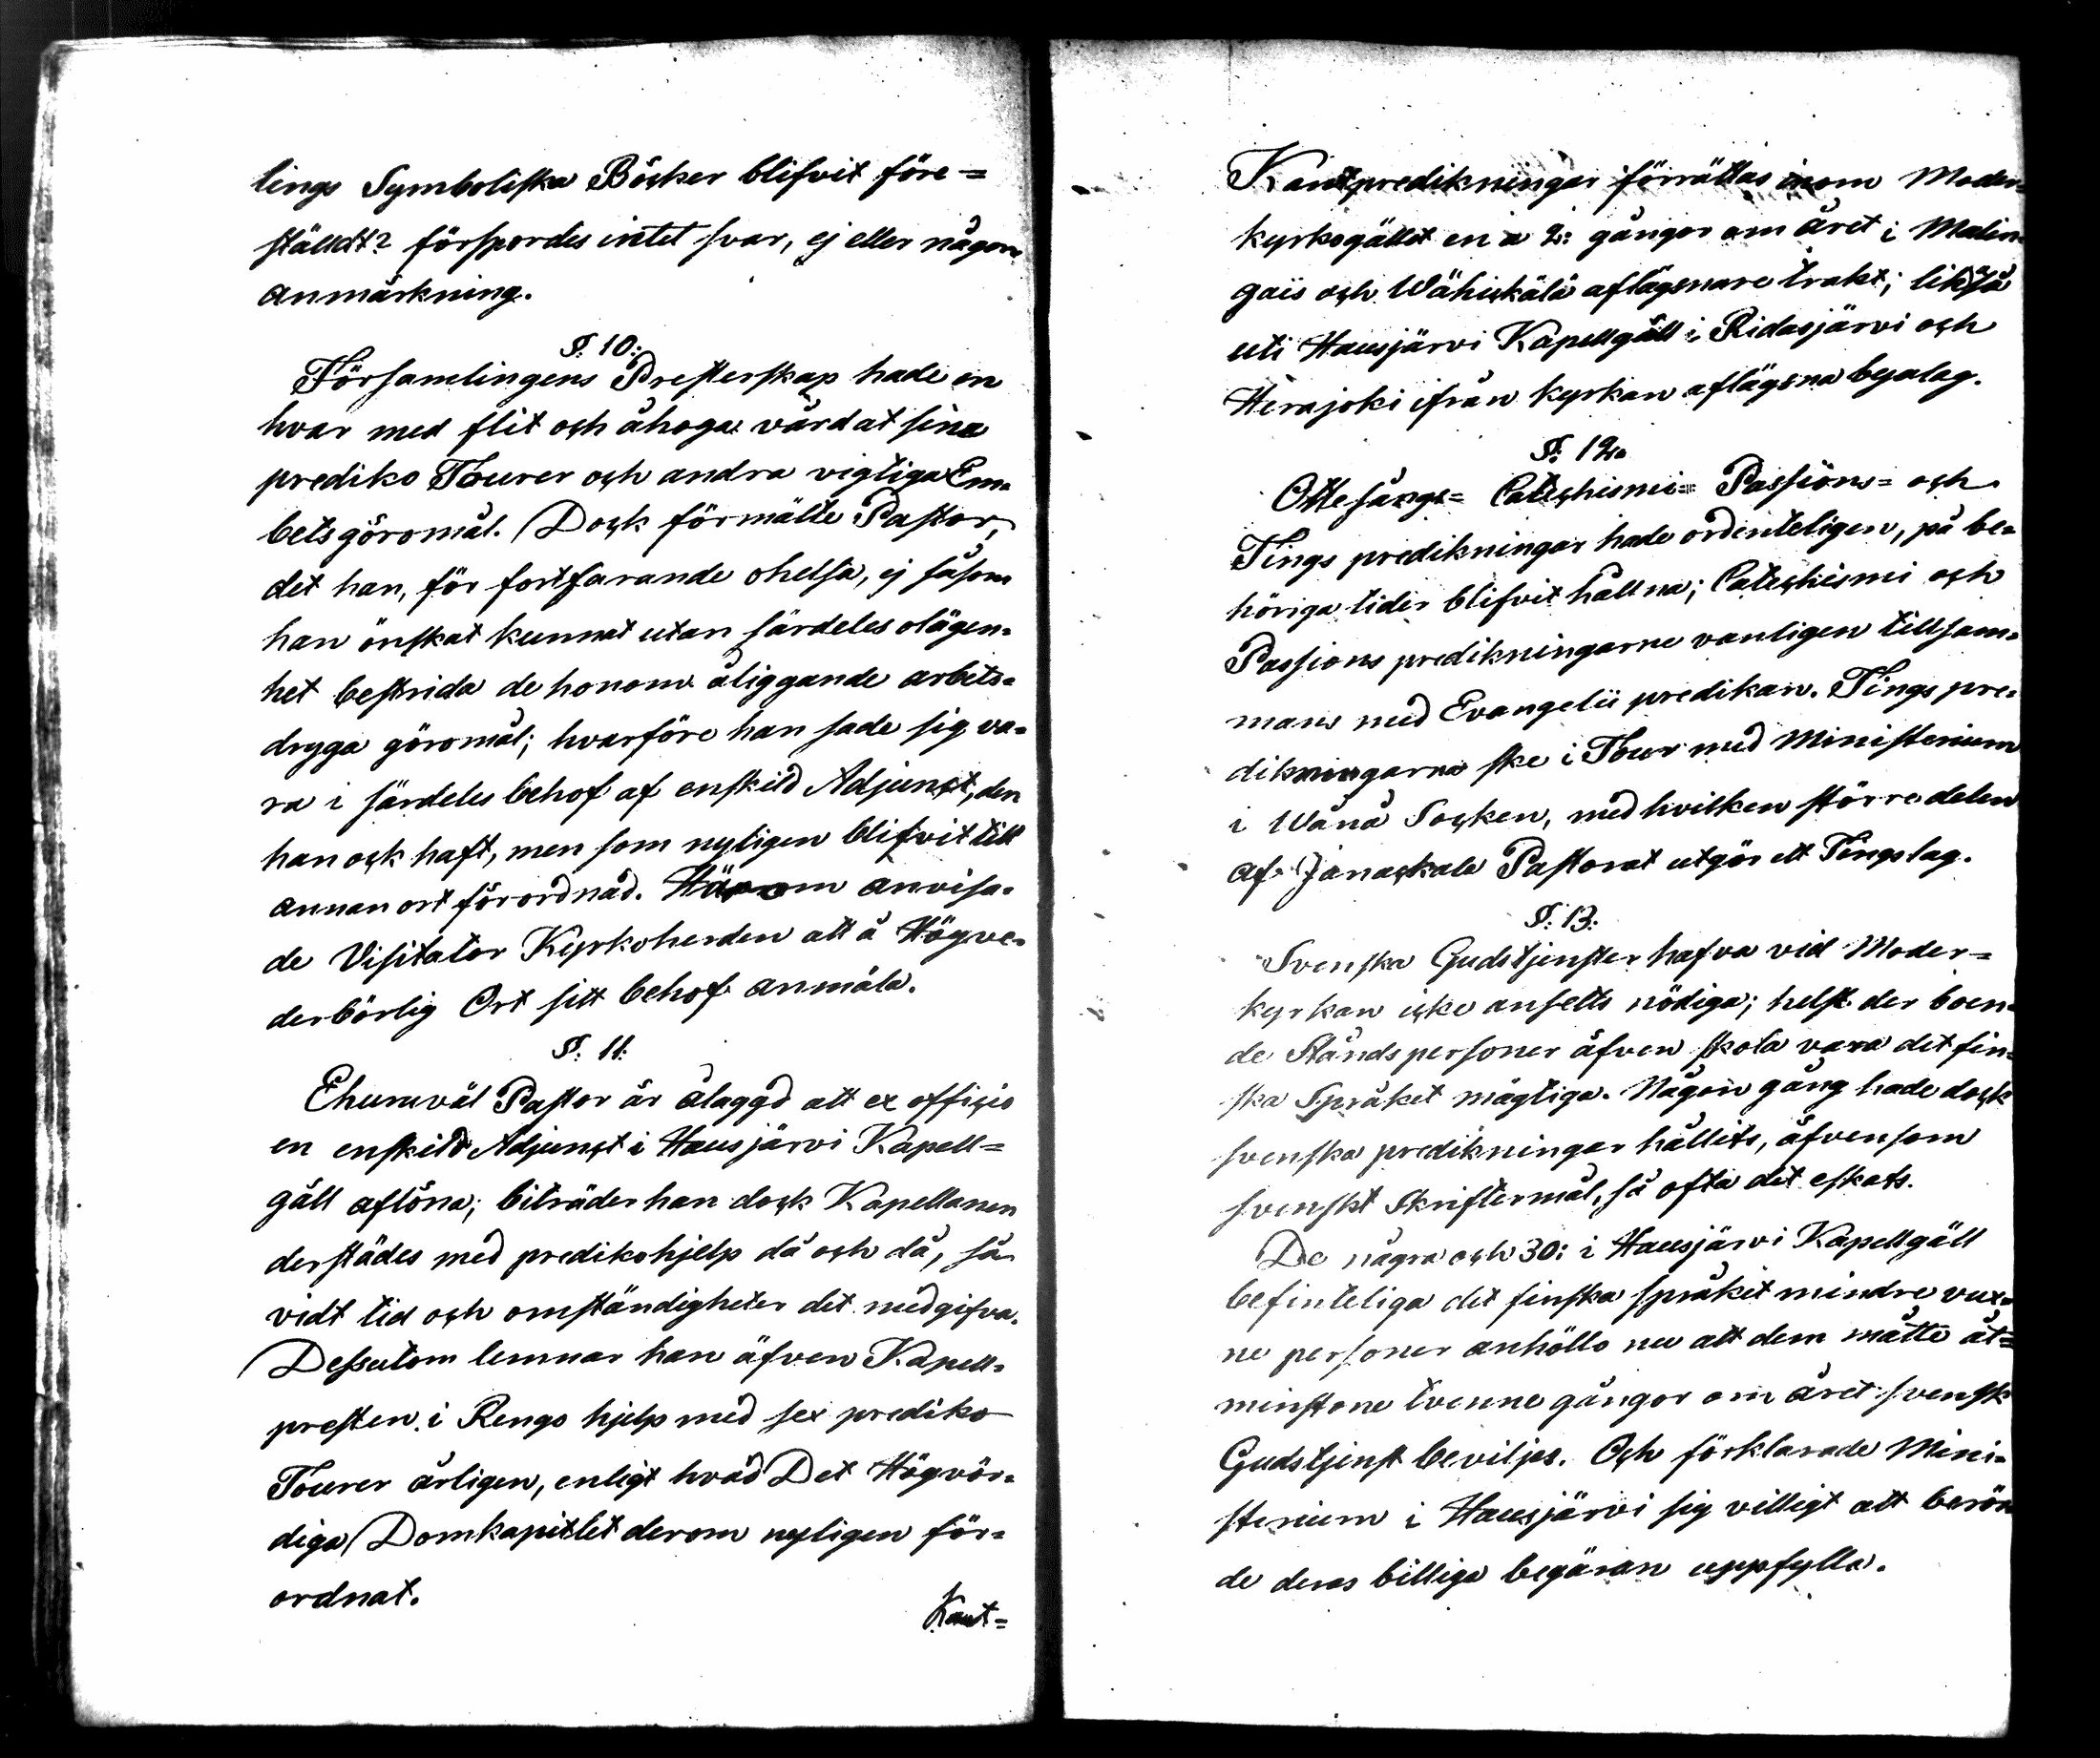 lings Symboliska Böcker blifvit före=
ställdt? förspordes intet svar, ej eller någon
anmärkning.
§. 10:
Församlingens Presterskap hade en
hvar med flit och åhoga vårdat sina
prediko Tourer och andra vigtiga Em=
betsgöromål. Dock förmälte Pastor,
det han, för fortfarande ohelsa, ej såsom
han önskat kunnat utan särdeles olägen=
het bestrida de honom åliggande arbets=
dryga göromål; hvarföre han sade sig va=
ra i särdeles behof af enskild Adjunct, den
han ock haft, men som nyligen blifvit till
annan ort förordnad. Härom anvisa=
de Visitator Kyrkoherden att å Högve=
derbörlig Ort sitt behof anmäla.
§. 11:
Ehuruväl Pastor är ålaggd att ex officio
en enskild Adjunct i Hausjärvi Kapell=
gäll aflöna; biträder han dock Kapellanen
derstädes med predikohjelp då och då, så
vidt tid och omständigheter det medgifva.
Dessutom lemnar han äfven Kapell=
presten i Rengo hjelp med sex prediko
Tourer årligen, enligt hvad Det Högvör=
diga Domkapitlet derom nyligen för=
ordnat.
Kant=
Kantpredikningar förrättas inom Moder=
kyrkogället en a 2: gångor om året i Malin=
gais och Wähickälä aflägsnare trakt; likså
uti Hausjärvi Kapellgäll i Ridasjärvi och
Herajoki ifrån kyrkan aflägsna byalag.
§. 12.
Ottesångs= Catechismi= Passions= och
Tings predikningar hade ordenteligen, på be=
höriga tider blifvit hållna; Catechismi och
Passions predikningarne vanligen tillsam=
mans med Evangelii predikan. Tings pre=
dikningarna ske i Tour med Ministerium
i Wånå Socken, med hvilken större delen
af Janackala Pastorat utgör ett Tingslag.
§. 13.
Svenska Gudstjenster hafva vid Moder=
kyrkan icke ansetts nödiga; helst der boen=
de Ståndspersoner äfven skola vara det fin=
ska Språket mägtiga. Någon gång hade dock
svenska predikningar hållits, äfvensom
svenskt Skriftermål, så ofta det eskats.
De några och 30: i Hausjärvi Kapellgäll
befinteliga det finska språket mindre vux=
ne personer anhöllo nu att dem måtte åt=
minstone tvenne gångor om året svensk
Gudstjenst beviljes. Och förklarade Mini=
sterium i Hausjärvi sig villigt att berör
de deras billiga begäran uppfylla.